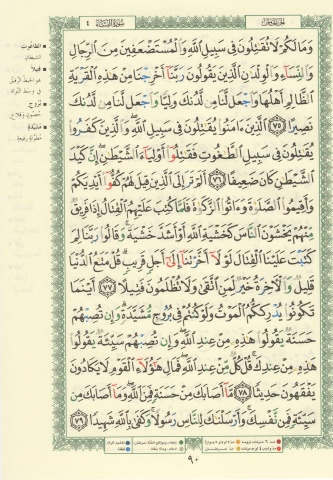 الجزء الخامس
سورة النساء
٤
وَمَا لَكُمْ لَا تُقَاتِلُونَ فِي سَبِيلِ اللَّهِ وَالْمُسْتَضْعَفِينَ مِنَ الرِّجَالِ
وَالنِّسَاءِ وَالْوِلْدَانِ الَّذِينَ يَقُولُونَ رَبَّنَا أَخْرِجْنَا مِنْ هَذِهِ الْقَرْيَةِ
الظَّالِمِ أَهْلُهَا وَاجْعَل لَّنَا مِن لَّدُنكَ وَلِيًّا وَاجْعَل لَّنَا مِن لَّدُنكَ
نَصِيرًا ٧٥ الَّذِينَ آمَنُوا يُقَاتِلُونَ فِي سَبِيلِ اللَّهِ وَالَّذِينَ كَفَرُوا
يُقَاتِلُونَ فِي سَبِيلِ الطَّاغُوتِ فَقَاتِلُوا أَوْلِيَاءَ الشَّيْطَانِ إِنَّ كَيْدَ
الشَّيْطَانِ كَانَ ضَعِيفًا ٧٦ أَلَمْ تَرَ إِلَى الَّذِينَ قِيلَ لَهُمْ كُفُّوا أَيْدِيَكُمْ
وَأَقِيمُوا الصَّلَاةَ وَآتُوا الزَّكَاةَ فَلَمَّا كُتِبَ عَلَيْهِمُ الْقِتَالُ إِذَا فَرِيقٌ
مِّنْهُمْ يَخْشَوْنَ النَّاسَ كَخَشْيَةِ اللَّهِ أَوْ أَشَدَّ خَشْيَةً وَقَالُوا رَبَّنَا لِمَ
كَتَبْتَ عَلَيْنَا الْقِتَالَ لَوْلَا أَخَّرْتَنَا إِلَى أَجَلٍ قَرِيبٍ قُلْ مَتَاعُ الدُّنْيَا
قَلِيلٌ وَالْآخِرَةُ خَيْرٌ لِّمَنِ اتَّقَى وَلَا تُظْلَمُونَ فَتِيلًا ٧٧ أَيْنَمَا
تَكُونُوا يُدْرِككُّمُ الْمَوْتُ وَلَوْ كُنتُمْ فِي بُرُوجٍ مُّشَيَّدَةٍ وَإِن تُصِبْهُمْ
حَسَنَةٌ يَقُولُوا هَذِهِ مِنْ عِندِ اللَّهِ وَإِن تُصِبْهُمْ سَيِّئَةٌ يَقُولُوا
هَذِهِ مِنْ عِندِكَ قُلْ كُلٌّ مِّنْ عِندِ اللَّهِ فَمَالِ هَؤُلَاءِ الْقَوْمِ لَا يَكَادُونَ
يَفْقَهُونَ حَدِيثًا ٧٨ مَّا أَصَابَكَ مِنْ حَسَنَةٍ فَمِنَ اللَّهِ وَمَا أَصَابَكَ مِن
سَيِّئَةٍ فَمِن نَّفْسِكَ وَأَرْسَلْنَاكَ لِلنَّاسِ رَسُولًا وَكَفَى بِاللَّهِ شَهِيدًا ٧٩
الطاغوت
الشيطان
فتيلا
هو الخيط الرقيق
في وسط النواة
بروج
حصون وقلاع
مشيدة
مطولة رفيعة
٩٠